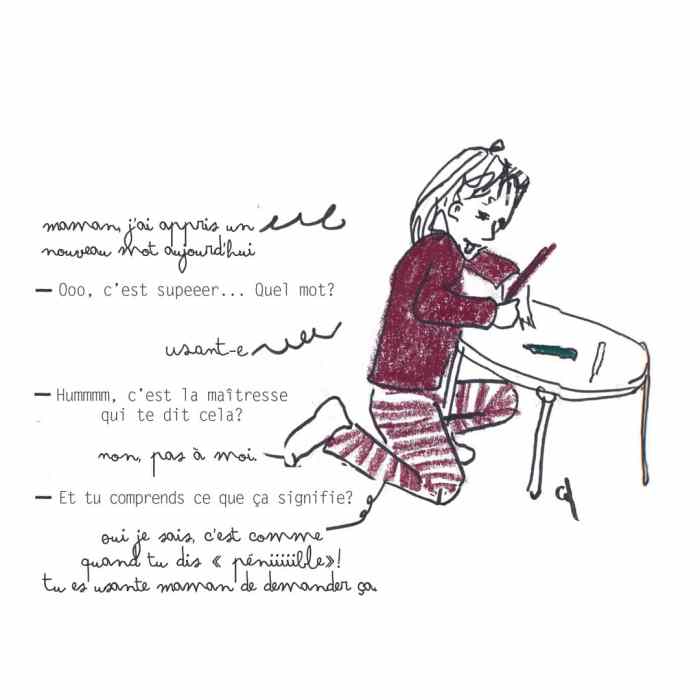 maman, j'ai appris un
nouveau mot aujourd'hui
— Ooo, c'est supeeer... Quel mot?
usant-e
— Hummmm, c'est la maîtresse
qui te dit cela?
non, pas à moi.
— Et tu comprends ce que ça signifie?
oui je sais, c'est comme
quand tu dis « péniiiiible»!
tu es usante maman de demander ça.